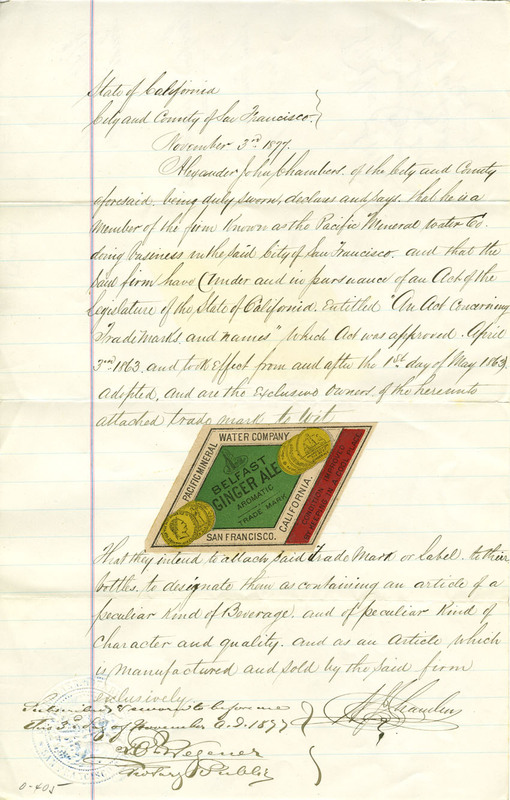 State of California
City and County of San Francisco.
November 3rd 1877.
Alexander John Chambers. of the City and County
aforesaid, being duly sworn, declares and says. that he is a
Member of the firm Known as the Pacific Mineral Water Co.
doing business in the said City of San Francisco. and that the
said firm have (Under and in pursuance of an Act of the
Legislature of the State of California. Entitled "An Act Concerning
Trade Marks and names" which Act was approved April
3rd 1863. and took Effect from and after the 1st day of May 1863)
adopted, and are the Exclusive Owners, of the hereunto
attached trade mark to Wit,
PACIFIC MINERAL WATER COMPANY
BELFAST
GINGER ALE
AROMATIC
TRADE MARK
SAN FRANCISCO. CALIFORNIA.
CONDITION IMPROVED
BY KEEPING IN A COOL PLACE
That they intend to attach said Trade Mark or Label. to their
bottles, to designate them as containing an article of a
peculiar Kind of Beverage. and of peculiar Kind of
Character and quality. and as an Article which
is manufactured and sold by the said firm
exclusively.
Subscribed & sworn to before me
this 3 day of November A.D. 1877
A J Chambers
Wegener
Notary Public
SAN FRANCISCO
0-405